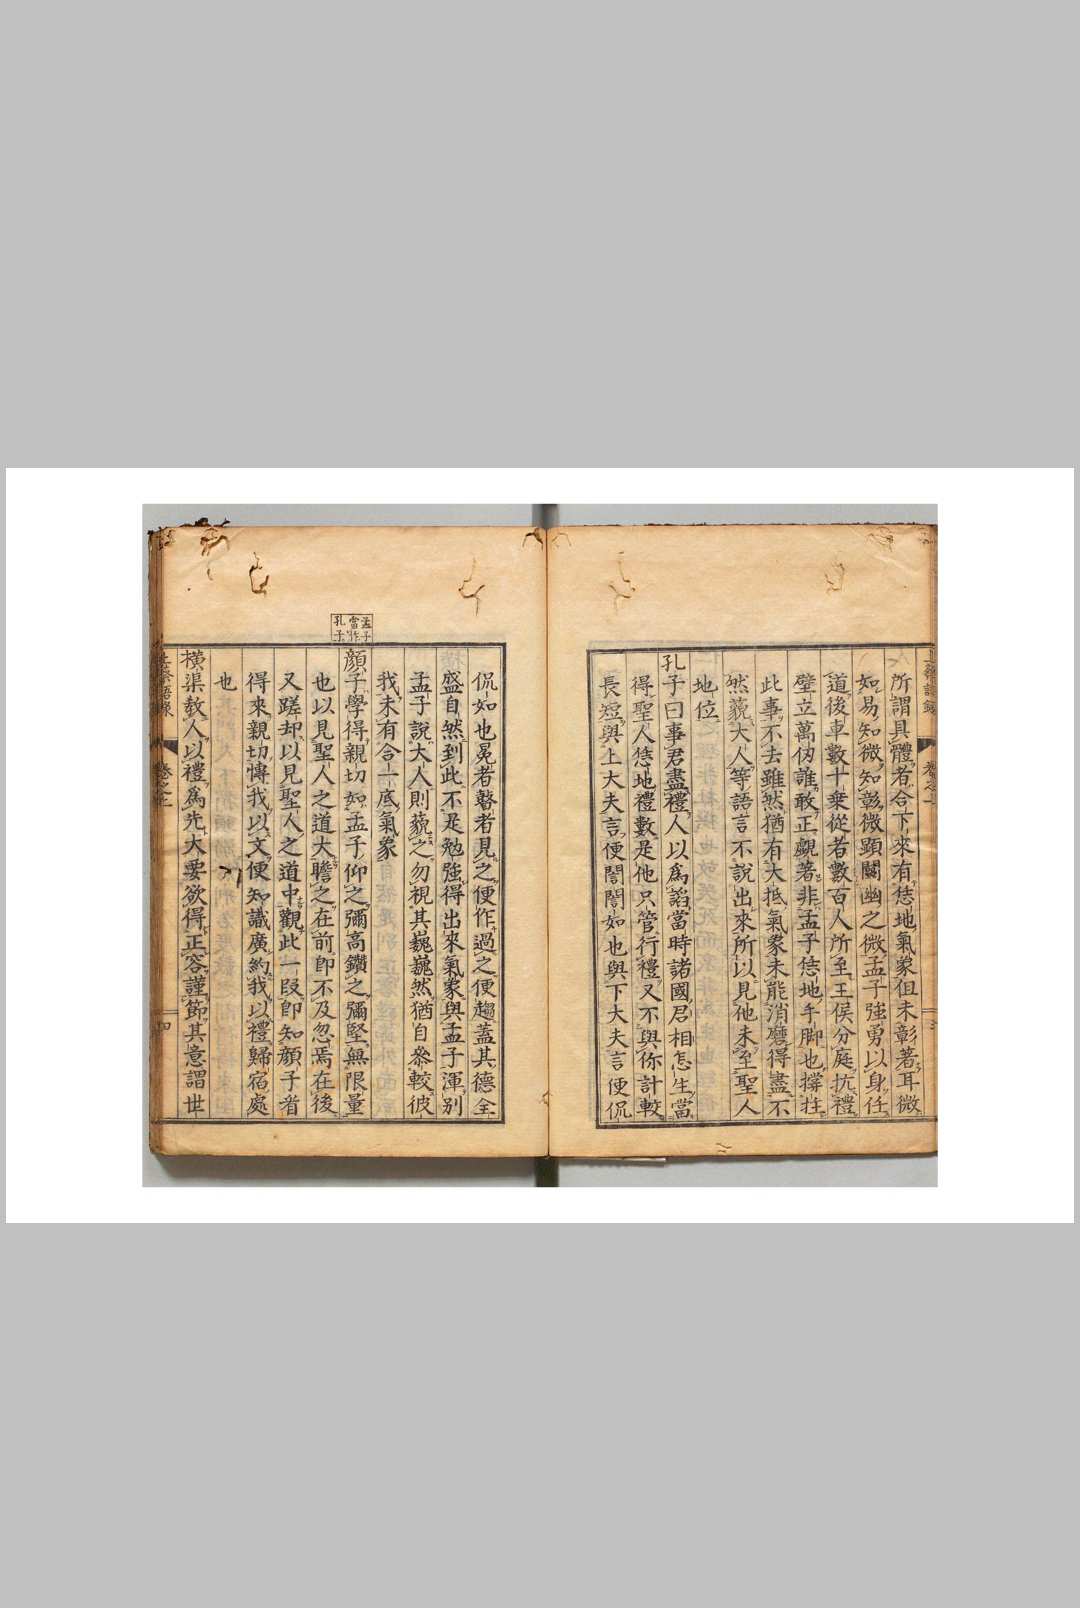 所謂具體者合下來有恁地氣象但未彰著耳微
如易知微知彰微顯闡幽之微孟子強勇以身任
道後車數十乗從者數百人所至王侯分庭抗禮
壁立萬仞誰敢正覷著非孟子恁地手脚也撐拄
此事不去雖然猶有大抵氣象未能消磨得盡不
然藐大人等語言不說出來所以見他未至聖人
地位
孔子曰事君盡禮人以爲謟當時諸國君相怎生當
得聖人恁地禮數是他只管行禮又不與你計較
長短與上大夫言便誾誾如也與下大夫言便侃
侃如也冕者瞽者見之便作過之便趨蓋其德全
盛自然到此不是勉強得出來氣象與孟子渾别
孟子說大人則藐之勿視其巍巍然猶自參較彼
我未有合一底氣象
孟子
當作
孔子
顔子學得親切如孟子仰之彌高鑽之彌堅無限量
也以見聖人之道大瞻之在前卽不及忽焉在後
又蹉却以見聖人之道中觀此一叚卽知顔子看
得來親切慱我以文便知識廣約我以禮歸宿處
也
橫渠敎人以禮爲先大要欲得正容謹節其意謂世
上蔡語録
卷之上
四